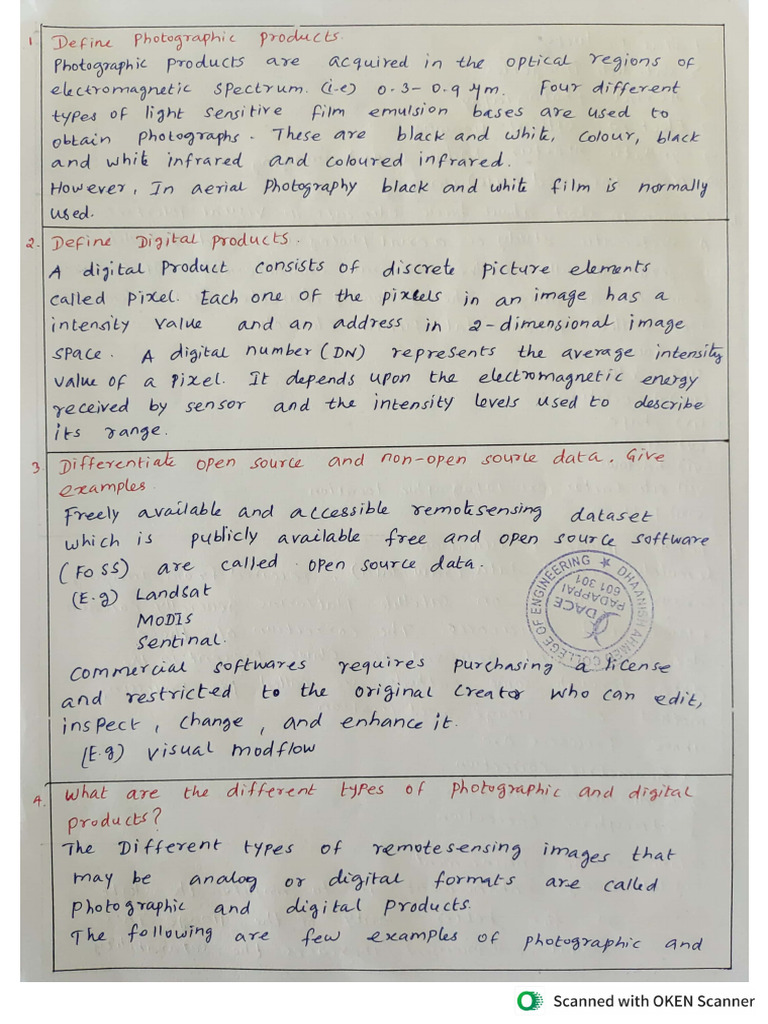 1. Define Photographic Products.
Photographic products are acquired in the optical regions of
electromagnetic spectrum. (i.e) 0.3-0.9 μm. Four different
types of light sensitive film emulsion bases are used to
obtain photographs. These are black and white, colour, black
and white infrared and coloured infrared.
However, In aerial photography black and white film is normally
used.
2. Define Digital products.
A digital product consists of discrete picture elements
called pixel. Each one of the pixels in an image has a
intensity value and an address in 2-dimensional image
space. A digital number (DN) represents the average intensity
value of a pixel. It depends upon the electromagnetic energy
received by sensor and the intensity levels used to describe
its range.
3. Differentiate open source and non-open source data. Give
examples.
Freely available and accessible remotesensing dataset
which is publicly available free and open source software
(FOSS) are called open source data.
(E.g) Landsat
MODIS
Sentinal.
DHAANISH AHMED COLLEGE OF ENGINEERING ★
DACE
PADAPPAI
601 301
Commercial softwares requires purchasing a license
and restricted to the original creator who can edit,
inspect, change, and enhance it.
(E.g) visual modflow
4. What are the different types of photographic and digital
products?
The Different types of remotesensing images that
may be analog or digital formats are called
photographic and digital products.
The following are few examples of photographic and
Scanned with OKEN Scanner